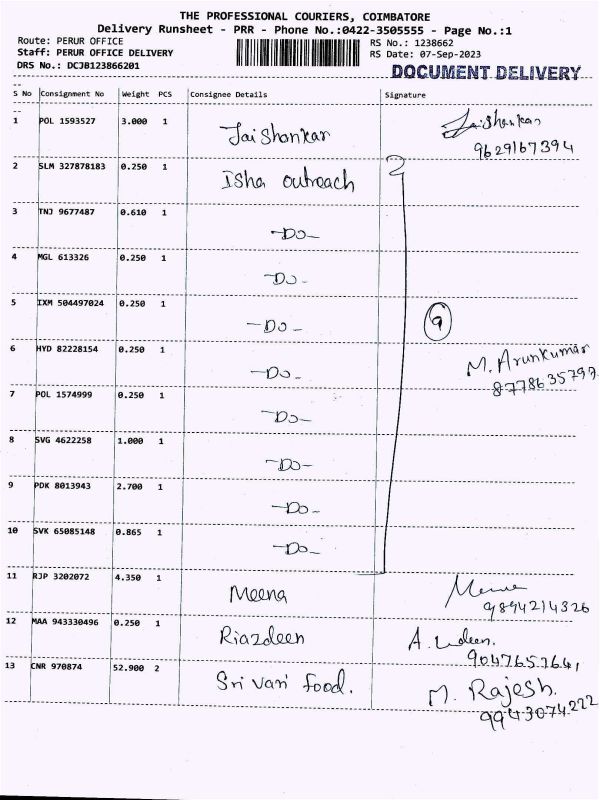 THE PROFESSIONAL COURIERS, COIMBATORE
Delivery Runsheet - PRR - Phone No.:0422-3505555 - Page No.:1
Route: PERUR OFFICE RS No.: 1238662
Staff: PERUR OFFICE DELIVERY RS Date: 07-Sep-2023
DRS No.: DCJB123866201 DOCUMENT DELIVERY
S No Consignment No Weight PCS Consignee Details Signature
1 POL 1593527 3.000 1 Jai Shankar Jaishankar
9629167394
2 SLM 327878183 0.250 1 Isha outreach
3 TNJ 9677487 0.610 1 -Do-
4 MGL 613326 0.250 1 -Do-
5 IXM 504497024 0.250 1 -Do- 9
6 HYD 82228154 0.250 1 -Do- M. Arunkumar
8778635797
7 POL 1574999 0.250 1 -Do-
8 SVG 4622258 1.000 1 -Do-
9 PDK 8013943 2.700 1 -Do-
10 SVK 65085148 0.865 1 -Do-
11 RJP 3202072 4.350 1 Meena
9894214326
12 MAA 943330496 0.250 1 Riazdeen A.
9047657641
13 CNR 970874 52.900 2 Sri Vari food. M. Rajesh.
9943074222